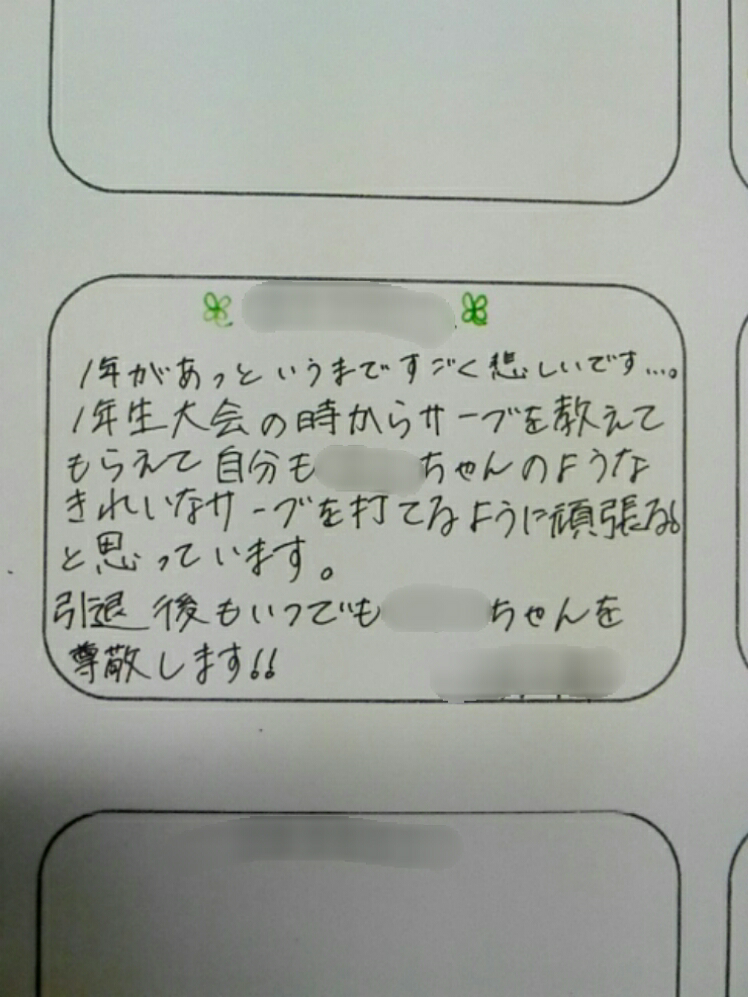 1年があっというまですごく悲しいです...。
1年生大会の時からサーブを教えて
もらえて自分も ちゃんのような
きれいなサーブを打てるように頑張る!
と思っています。
引退後もいつでも ちゃんを
尊敬します!!